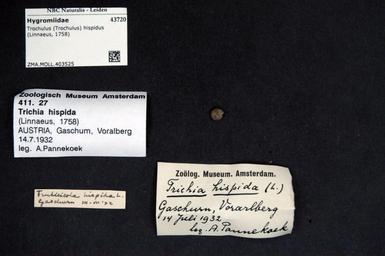 NBC Naturalis - Leiden
Hygromiidae 43720
Trochulus (Trochulus) hispidus
(Linnaeus, 1758)
ZMA.MOLL.403525
Zoologisch Museum Amsterdam
411. 27
Trichia hispida
(Linnaeus, 1758)
AUSTRIA, Gaschum, Voralberg
14.7.1932
leg. A.Pannekoek
Fruticicola hispida L.
Gaschurn
Zoölog. Museum. Amsterdam.
Trichia hispida (L.)
Gaschurn, Vorarlberg
14 Juli 1932
leg. A. Pannekoek